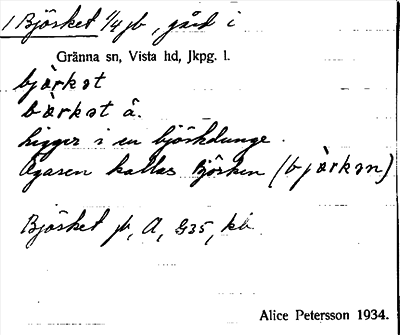 1 Björket 1/4 jb, gård i
Gränna sn, Vista hd, Jkpg. l.
bjärkət
bärkət å.
Ligger i en björkdunge.
Ägaren kallas Björken (bjärkən)
Björket jb, A, G35, kb
Alice Petersson 1934.